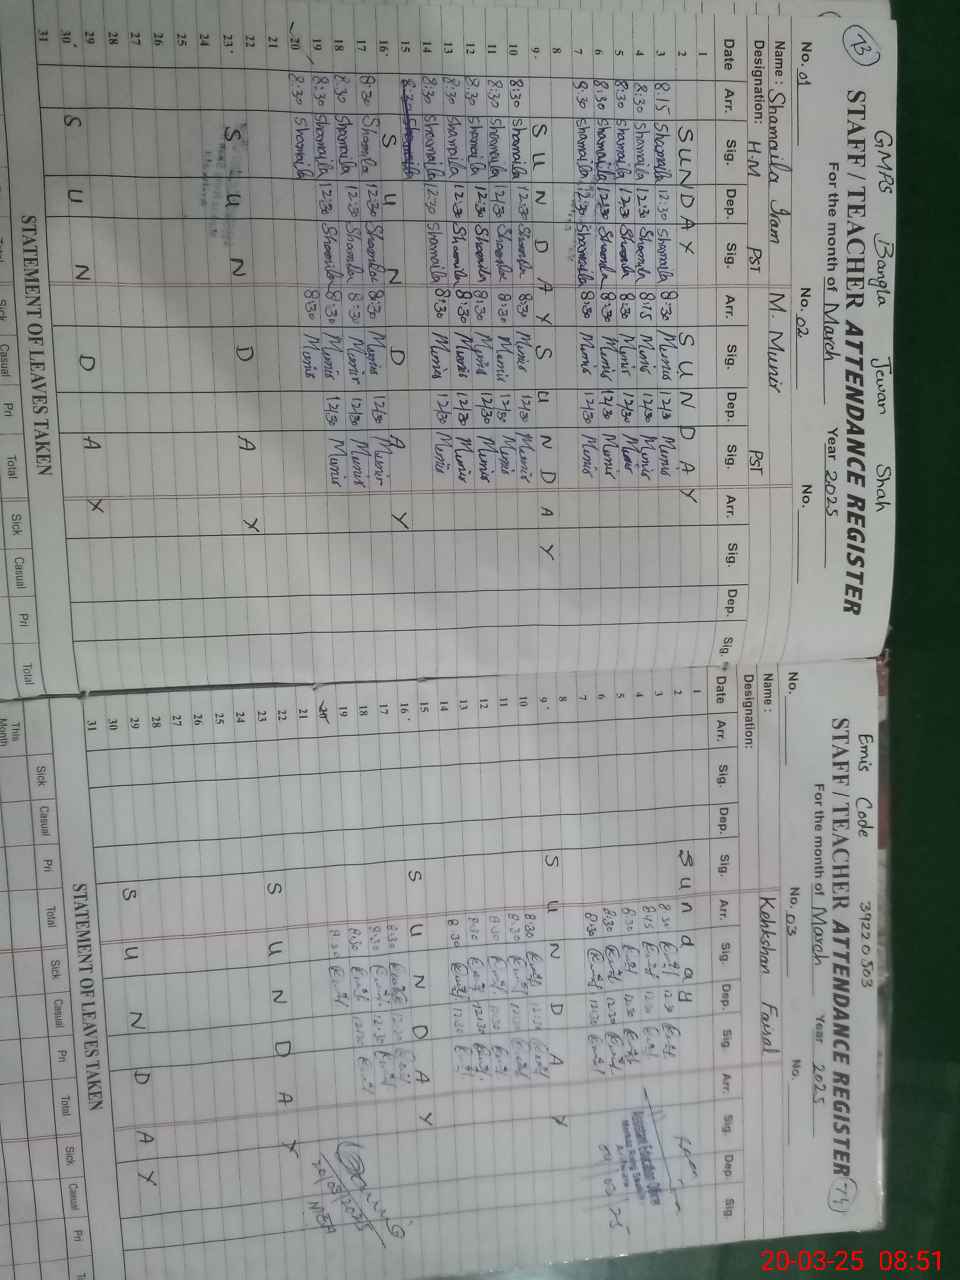 73
GMPS Bangla Jewan Shah
STAFF / TEACHER ATTENDANCE REGISTER
For the month of March Year 2025
No. 01 No. 02 No.
Name : Shamaila Iram M. Munir
Designation: H.M PST PST
Date Arr. Sig. Dep. Sig. Arr. Sig. Dep. Sig. Arr. Sig. Dep. Sig.
1
2 SUNDAY SUNDAY
3 8:15 Shamaila 12:30 Shamaila 8:30 Munir 12/30 Munir
4 8:30 Shamaila 12:30 Shamaila 8:15 Munir 12/30 Munir
5 8:30 Shamaila 12:30 Shamaila 8:30 Munir 12/30 Munir
6 8:30 Shamaila 12:30 Shamaila 8:30 Munir 12/30 Munir
7 8:30 Shamaila 12:30 Shamaila 8:30 Munir 12/30 Munir
8
9 SUNDAY SUNDAY
10 8:30 Shamaila 12:30 Shamaila 8:30 Munir 12/30 Munir
11 8:30 Shamaila 12/30 Shamaila 8:30 Munir 12/30 Munir
12 8:30 Shamaila 12:30 Shamaila 8:30 Munir 12/30 Munir
13 8:30 Shamaila 12:30 Shamaila 8:30 Munir 12/30 Munir
14 8:30 Shamaila 12:30 Shamaila 8:30 Munir 12/30 Munir
15
16 SUNDAY
17 8:30 Shamaila 12:30 Shamaila 8:30 Munir 12/30 Munir
18 8:30 Shamaila 12:30 Shamaila 8:30 Munir 12/30 Munir
19 8:30 Shamaila 12:30 Shamaila 8:30 Munir 12/30 Munir
20 8:30 Shamaila 8:30 Munir
21
22
23 SUNDAY
24
25
26
27
28
29
30 SUNDAY
31
STATEMENT OF LEAVES TAKEN
Sick Casual Pri Total Sick Casual Pri Total
74
Emis Code 39220503
STAFF / TEACHER ATTENDANCE REGISTER
For the month of March Year 2025
No. No. 03 No.
Name : Kehkshan Faisal
Designation:
Date Arr. Sig. Dep. Sig. Arr. Sig. Dep. Sig. Arr. Sig. Dep. Sig.
1
2 Sunday
3 8:30 12:30
4 8:45 12:30
5 8:30 12:30
6 8:30 12:30
7 8:30 12:30
8
9 SUNDAY
10 8:30 12:30
11 8:30 12:30
12 8:30 12:30
13 8:30 12:30
14 8:30 12:30
15
16 SUNDAY
17 8:30 12:30
18 8:30 12:30
19 8:30 12:30
20 8:30
21
22
23 SUNDAY
24
25
26
27
28
29
30 SUNDAY
31
Assistant Education Officer
20/03/2025
STATEMENT OF LEAVES TAKEN
This Month Sick Casual Pri Total Sick Casual Pri Total Sick Casual Pri
20-03-25 08:51